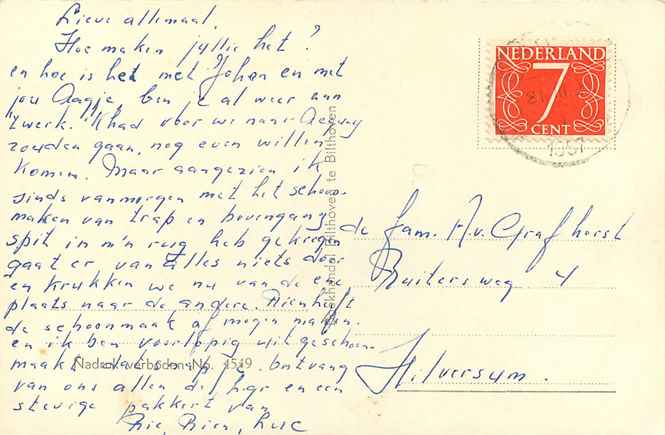 Lieve allemaal.
Hoe maken jyllie het?
en hoe is het met Johan en met
jou Aagje, ben je al weer aan
't werk. 'k had voor we naar
zouden gaan, nog even willen
komen. Maar aangezien ik
sinds vanmorgen met het schoon-
maken van trap en bovengang
spit in m'n rug heb gekregen
gaat er van alles niets door
en krukken we nu van de ene
plaats naar de andere. Rien heeft
de schoonmaak af mogen maken.
en ik ben voorlopig uitgeschoon-
maakt. ontvang
van ons allen de hgr en een
stevige pakkert van
Rie, Rien, Luc
NEDERLAND
7
CENT
1957
Boekhandel Bilthoven te Bilthoven
de fam. A. v. Grafhorst
Ruitersweg 4
Hilversum.
Nadruk verboden No. 4519